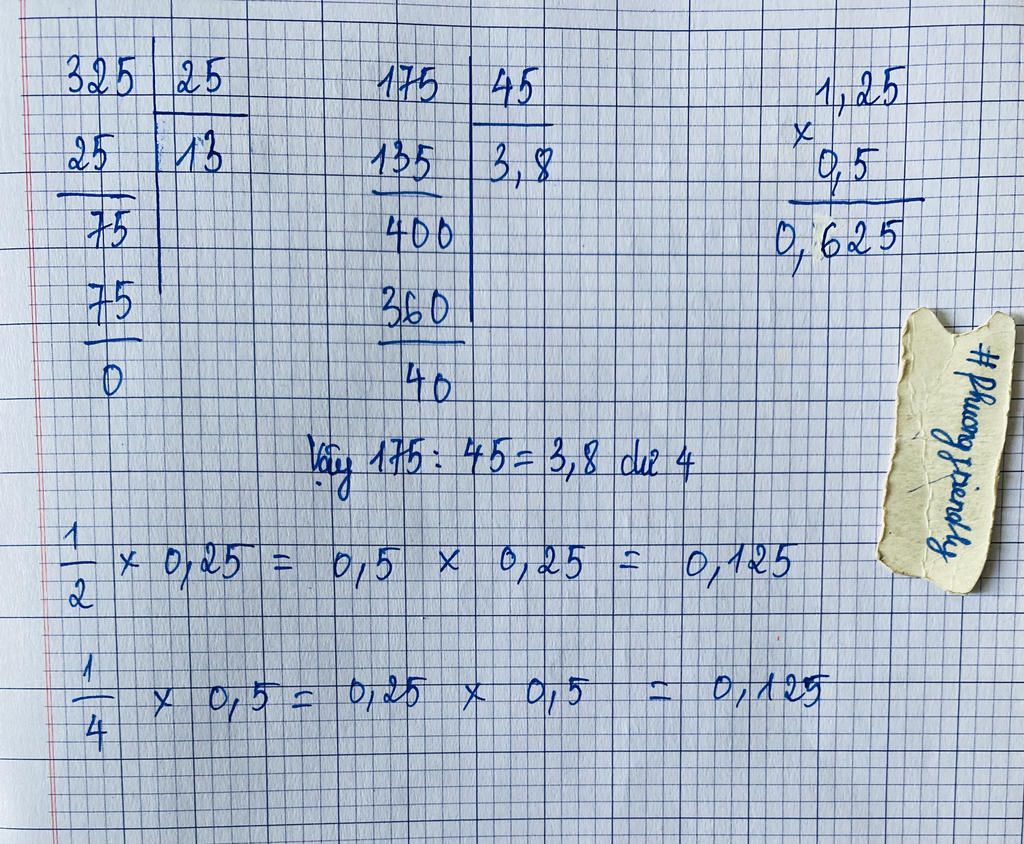 325 25
25 13
75
75
0
175 45
135 3,8
400
360
40
1,25
x
0,5
0,625
Vậy 175 : 45 = 3,8 dư 4
1/2 x 0,25 = 0,5 x 0,25 = 0,125
1/4 x 0,5 = 0,25 x 0,5 = 0,125
#phuongfriendly